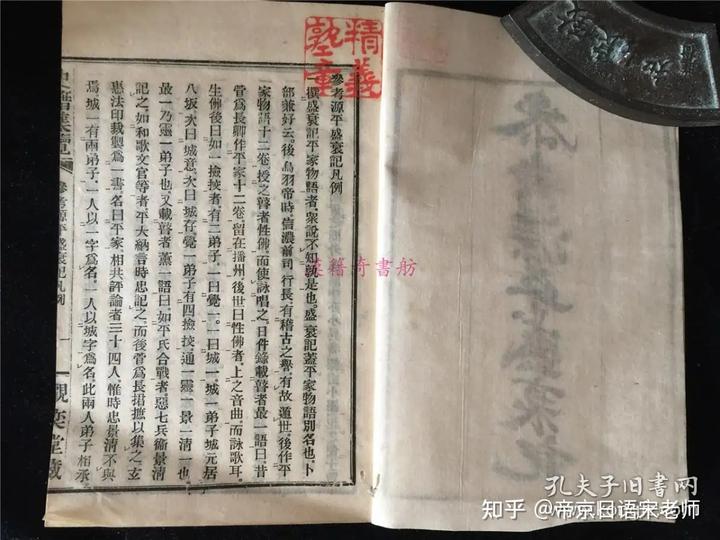 精義
塾章
參考源平盛衰記凡例
一撰盛衰記平家物語者、衆說不知孰是也、盛衰記蓋平家物語別名也、卜
部兼好云、後鳥羽帝時、信濃前司行長、有稽古之譽、有故遁世、後作平
家物語十二卷、授之瞽者性佛、而使詠唱之、日件錄載瞽者最一語曰、昔
菅爲長卿作平家十二卷、留在播州後世曰性佛者、上之音曲、而詠歌耳、
生佛後曰如一撿挍者、有二弟子、一曰覺一、一曰城一、城一弟子城元居
八坂、次曰城意、次曰城存、覺一弟子有四撿挍、通一靈一景一淸一也、
最一乃靈一弟子也、又載瞽者薰一語曰、如平氏合戰者、惡七兵衞景淸
記之、如和歌文官等者、平大納言時忠記之、而後菅爲長捃摭以集之、玄
惠法印裁製爲一書、名曰平家、相共評論者三十四人、惟時忠景淸不與
焉、城一有兩弟子、一人以一字爲名、一人以城字爲名、此兩人弟子相承、
參考源平盛衰記凡例
一
觀奕堂藏
漢籍奇書舫
孔夫子旧書网
知乎 @帝京日语宋老师